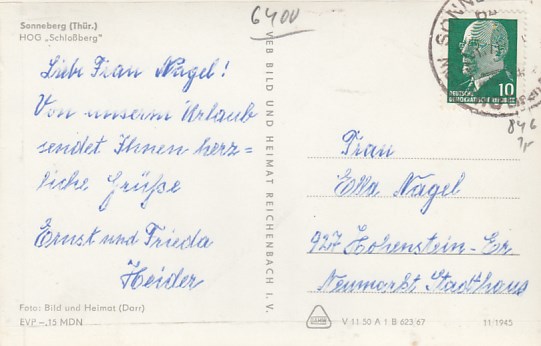 Sonneberg (Thür.)
HOG „Schloßberg"
6400
Liebe Frau Nagel!
Von unserm Urlaub
sendet Ihnen herz=
liche Grüße
Ernst und Frieda
Heider
Foto: Bild und Heimat (Dorr)
EVP –.15 MDN
VEB BILD UND HEIMAT REICHENBACH I. V.
SONNE
10
DEUTSCHE
DEMOKRATISCHE REPUBLIK
846
Frau
Ella Nagel
927 Hohenstein-Er
Neumarkt Stadthaus
V 11 50 A 1 B 623/67
11/1945